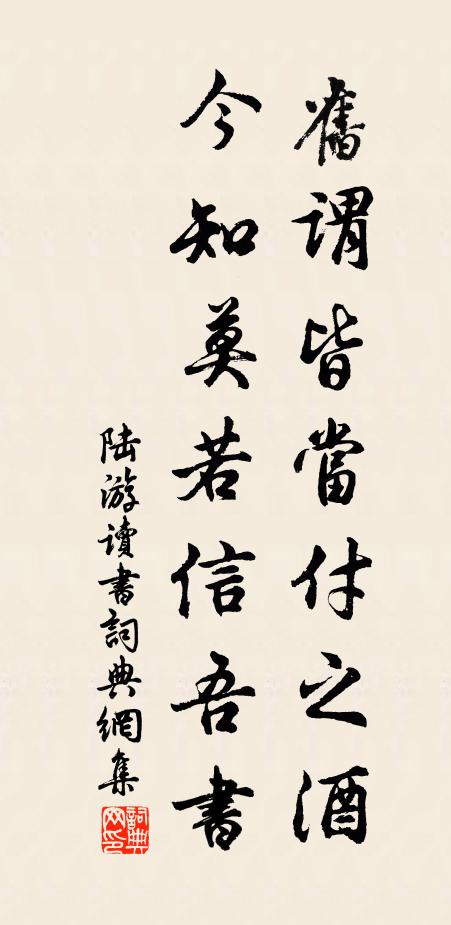 舊謂皆當付之酒
今知莫若信吾書
陆游讀書詞典網集
詞典
网印